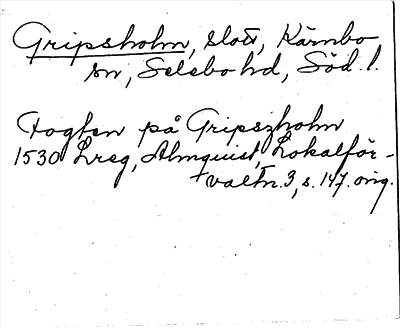 Gripsholm, slott, Kärnbo
sn, Selebo hd, Söd. l.
Fogten på Gripszholm
1530 Lreg, Almquist, Lokalför-
valtn. 3, s. 147. orig.